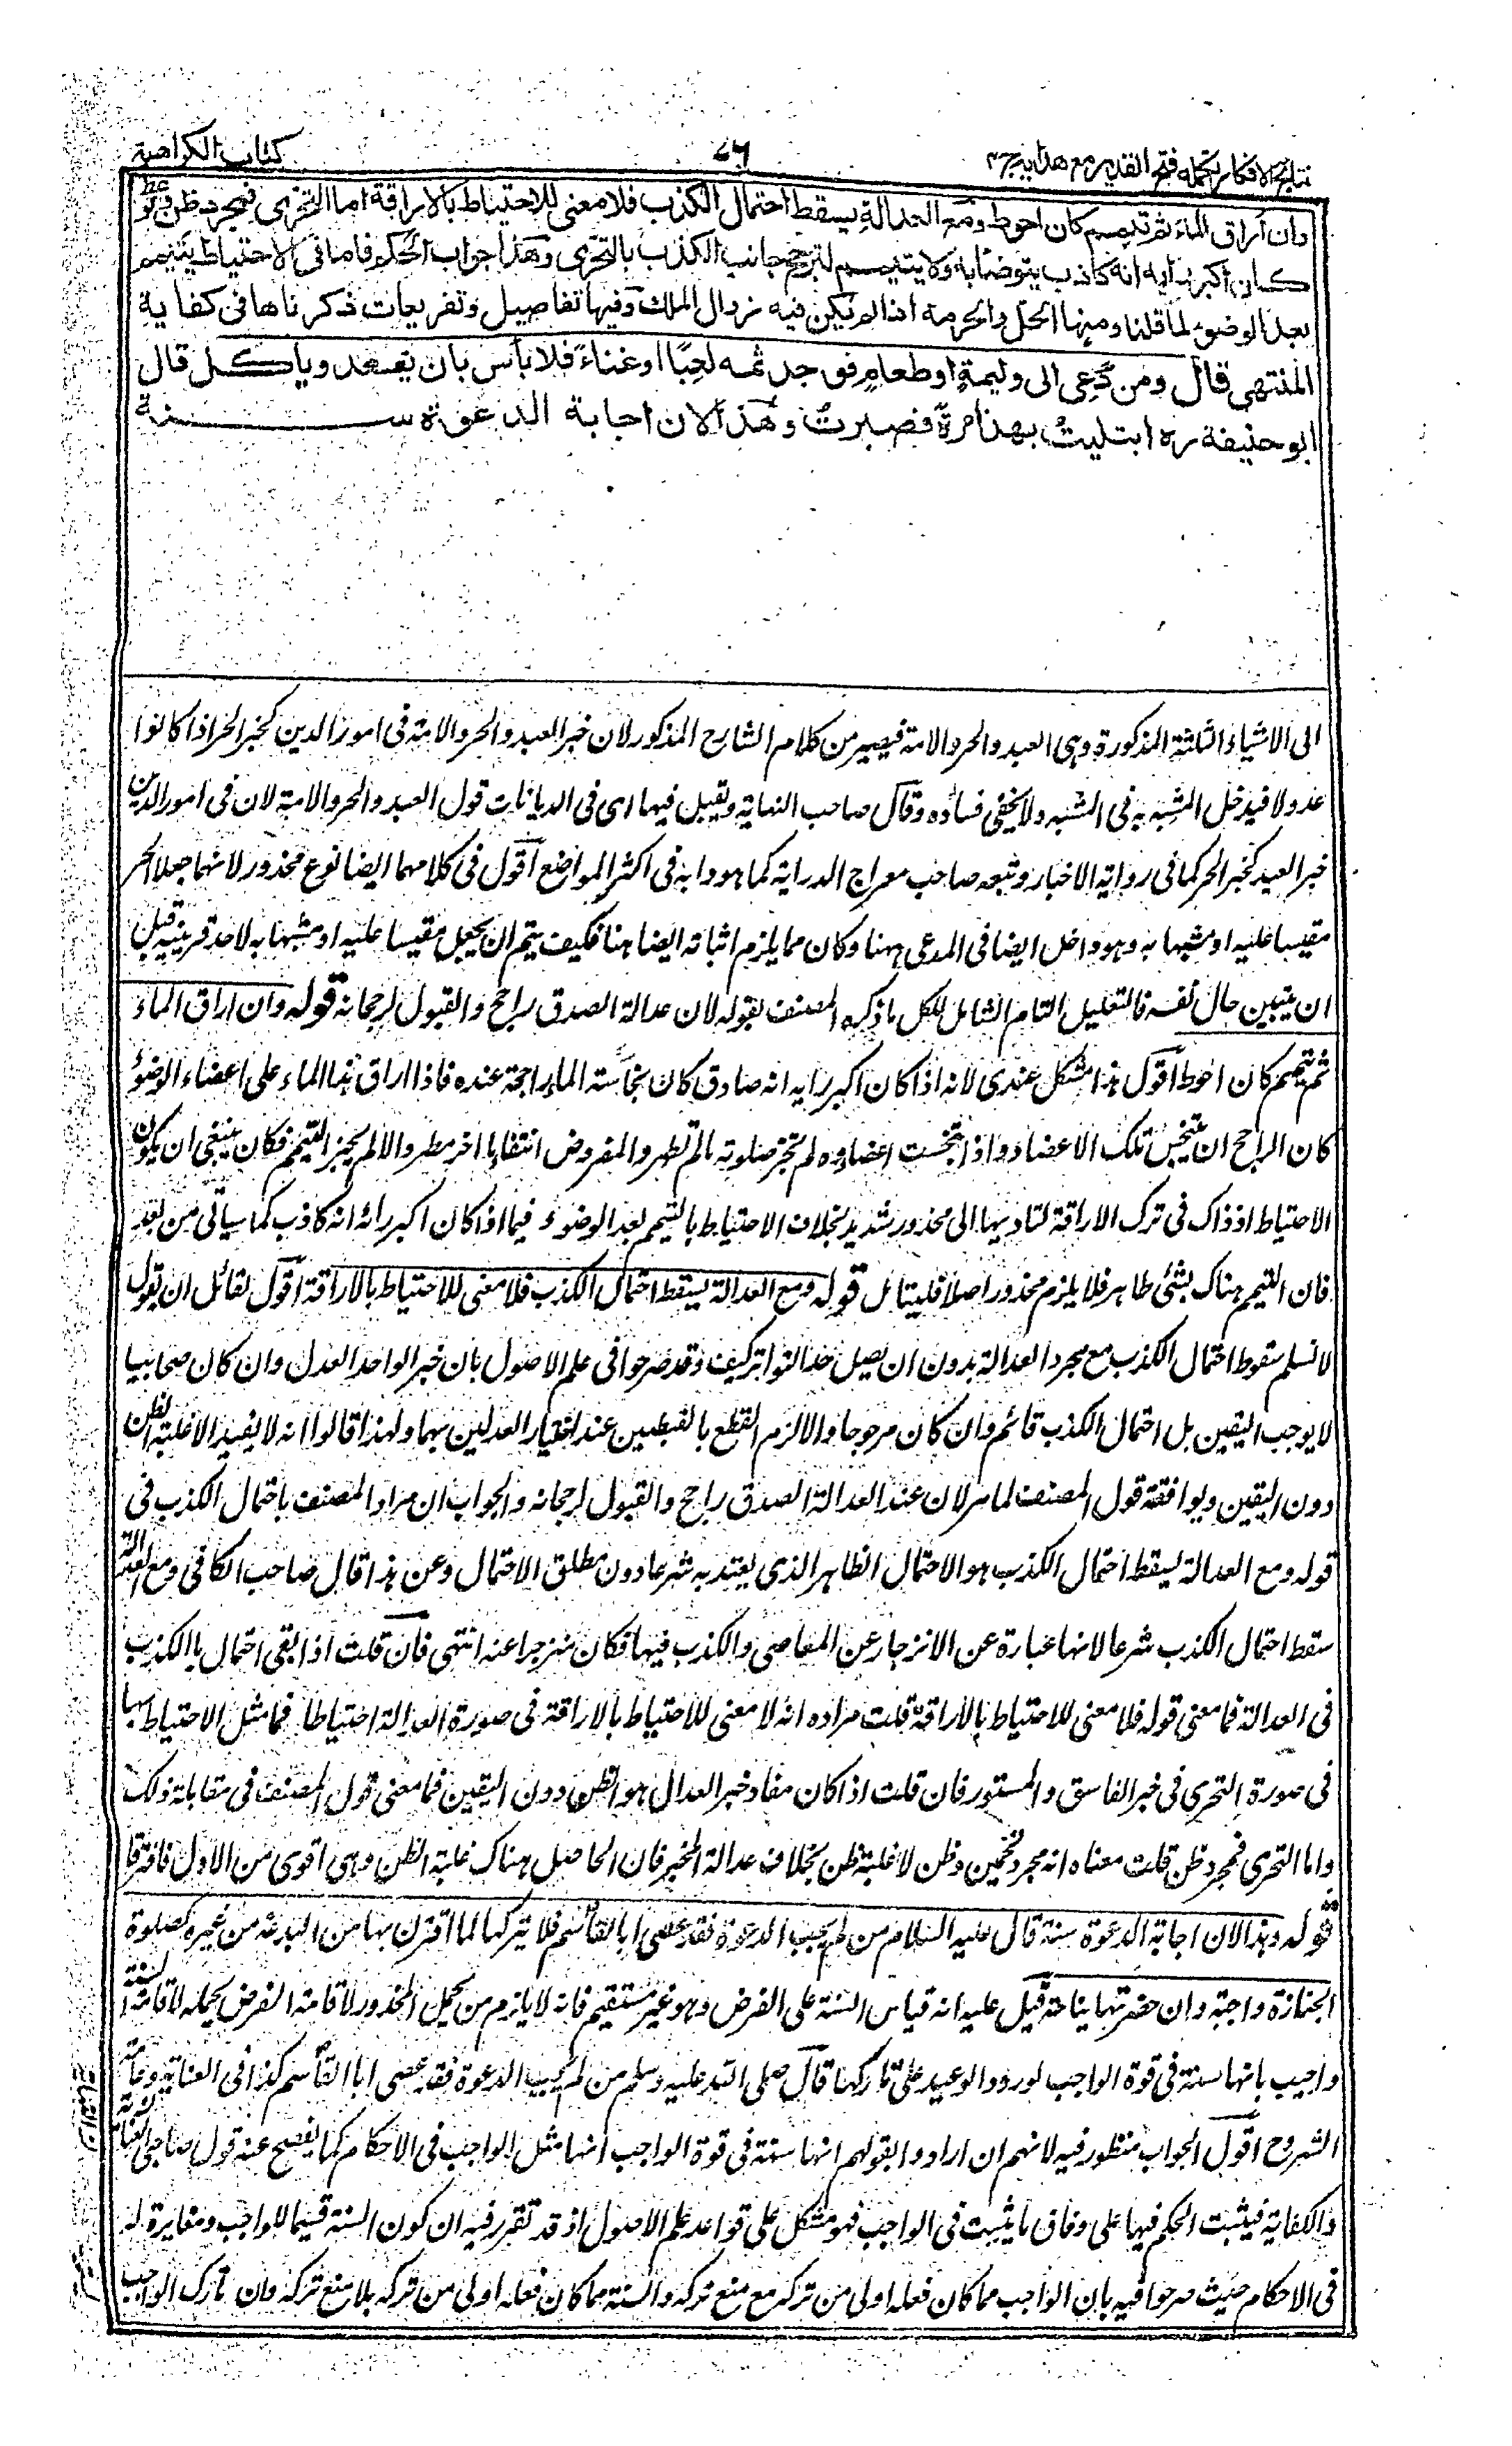 نتائج الافكار تكملة فتح القدير مع هدايه ج ٤
٧٦
كتاب الكراهية
وان اراق الماء ثم تيمم كان احوط ومع العدالة يسقط احتمال الكذب فلا معنى للاحتياط بالاراقة اما التحرى فمجرد ظن ولو
كان اكبر رايه انه كاذب يتوضأ به ولا يتيمم لترجح جانب الكذب بالتحرى وهذا جواب الحكم فاما فى الاحتياط يتيمم
بعد الوضوء لما قلنا ومنها الحل والحرمة اذا لم يكن فيه زوال الملك وفيها تفاصيل وتفريعات ذكرناها فى كفاية
المنتهى قال ومن دُعِى الى وليمةٍ او طعامٍ فوجد ثمه لعِبًا او غناءً فلا بأس بان يقعد وياكل قال
ابو حنيفة ره ابتليتُ بهذا مرةً فصبرتُ وهذا لان اجابة الدعوة سنة
الى الاشياء الثلثة المذكورة وهى العبد والحر والامة فيصير من كلام الشارح المذكور لان خبر العبد والحر والامة فى امور الدين كخبر الحر اذا كانوا
عدولا فيدخل المشبه به فى المشبه ولا يخفى فساده وقال صاحب النهاية ويقبل فيها اى فى الديانات قول العبد والحر والامة لان فى امور الدين
خبر العبد كخبر الحر كما فى رواية الاخبار وتبعه صاحب معراج الدراية كما هو دابه فى اكثر المواضع اقول فى كلامهما ايضا نوع محذور لانهما جعلا الحر
مقيسا عليه او مشبها به وهو داخل ايضا فى المدعى ههنا وكان مما يلزم اثباته ايضا هنا فكيف يتم ان يجعل مقيسا عليه او مشبها به لاحد قرينيه قبل
ان يتبين حال نفسه فالتعليل التام الشامل للكل ما ذكره المصنف بقوله لان عدالة الصدق راجح والقبول لرجحانه قوله وان اراق الماء
ثم تيمم كان احوط اقول هذا مشكل عندى لانه اذا كان اكبر رايه انه صادق كان نجاسة الماء راجحة عنده فاذا اراق هذا الماء على اعضاء الوضوء
كان الراجح ان يتنجس تلك الاعضاء واذا تنجست اعضاوه لم تجز صلوته ما لم تطهر والمفروض انتفاء ماء اخر مطهر والا لم يجز التيمم فكان ينبغى ان يكون
الاحتياط اذ ذاك فى ترك الاراقة لتاديها الى محذور شديد بخلاف الاحتياط بالتيمم بعد الوضوء فيما اذا كان اكبر رائه انه كاذب كما سياتى من بعد
فان التيمم هناك بشئ طاهر فلا يلزم محذور اصلا فليتامل قوله ومع العدالة يسقط احتمال الكذب فلا معنى للاحتياط بالاراقة اقول لقائل ان يقول
لا نسلم سقوط احتمال الكذب مع مجرد العدالة بدون ان يصل حد التواتر كيف وقد صرحوا فى علم الاصول بان خبر الواحد العدل وان كان صحابيا
لا يوجب اليقين بل احتمال الكذب قائم وان كان مرجوحا والا لزم القطع بالنقيضين عند اخبار العدلين بهما ولهذا قالوا انه لا يفيد الا غلبة الظن
دون اليقين ويوافقه قول المصنف لما مر لان عند العدالة الصدق راجح والقبول لرجحانه والجواب ان مراد المصنف باحتمال الكذب فى
قوله ومع العدالة يسقط احتمال الكذب هو الاحتمال الظاهر الذى يعتد به شرعا دون مطلق الاحتمال وعن هذا قال صاحب الكافى ومع العدالة
سقط احتمال الكذب شرعا لانها عبارة عن الانزجار عن المعاصى والكذب فيها فكان منزجرا عنه انتهى فان قلت اذا بقى احتمال ما للكذب
فى العدالة فما معنى قوله فلا معنى للاحتياط بالاراقة قلت مراده انه لا معنى للاحتياط بالاراقة فى صورة العدالة احتياطا فما مثل الاحتياط بها
فى صورة التحرى فى خبر الفاسق والمستور فان قلت اذا كان مفاد خبر العدل هو الظن دون اليقين فما معنى قول المصنف فى مقابلة ذلك
واما التحرى فمجرد ظن قلت معناه انه مجرد تخمين وظن لا غلبة ظن بخلاف عدالة المخبر فان الحاصل هناك غلبة الظن وهى اقوى من الاول فافترقا
قوله وهذا لان اجابة الدعوة سنة قال عليه السلام من لم يجب الدعوة فقد عصى ابا القاسم فلا يتركها لما اقترن بها من البدعة من غيره كصلوة
الجنازة واجبة وان حضرتها نياحة قيل عليه انه قياس السنة على الفرض وهو غير مستقيم فانه لا يلزم من تحمل المحذور لاقامة الفرض تحمله لاقامة السنة
واجيب بانها سنة فى قوة الواجب لورود الوعيد على تاركها قال صلى الله عليه وسلم من لم يجب الدعوة فقد عصى ابا القاسم كذا فى العناية وعامة
الشروح اقول الجواب منظور فيه لانهم ان ارادوا بقولهم انها سنة فى قوة الواجب انها مثل الواجب فى الاحكام كما يفصح عنه قول صاحبى العناية
والكفاية فيثبت الحكم فيها على وفاق ما يثبت فى الواجب فهو مشكل على قواعد علم الاصول اذ قد تقرر فيه ان كون السنة قسيما للواجب ومغايرة له
فى الاحكام حيث صرحوا فيه بان الواجب مما كان فعله اولى من تركه مع منع تركه والسنة مما كان فعله اولى من تركه بلا منع تركه وان تارك الواجب